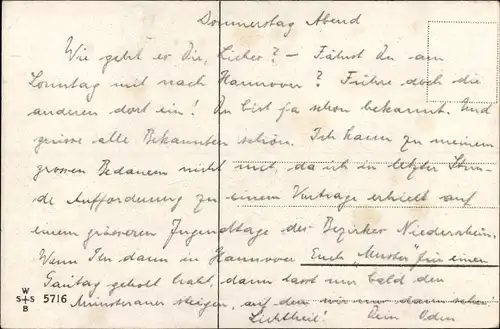 Donnerstag Abend
Wie geht es Dir, Lieber? – Fährst Du am
Sonntag mit nach Hannover? Führe doch die
anderen dort ein! Du bist ja schon bekannt. Und
grüsse alle Bekannten schön. Ich kann zu meinem
grossen Bedauern nicht mit, da ich in letzter Stun-
de Aufforderung zu einem Vortrage erhielt auf
einem grösseren Jugendtage des Bezirkes
Wenn Ihr dann in Hannover Euch "Muster" für einen
Gautag geholt habt, dann lasst uns bald den
steigen, auf den wir uns dann schon!
Dein
W S S B 5716